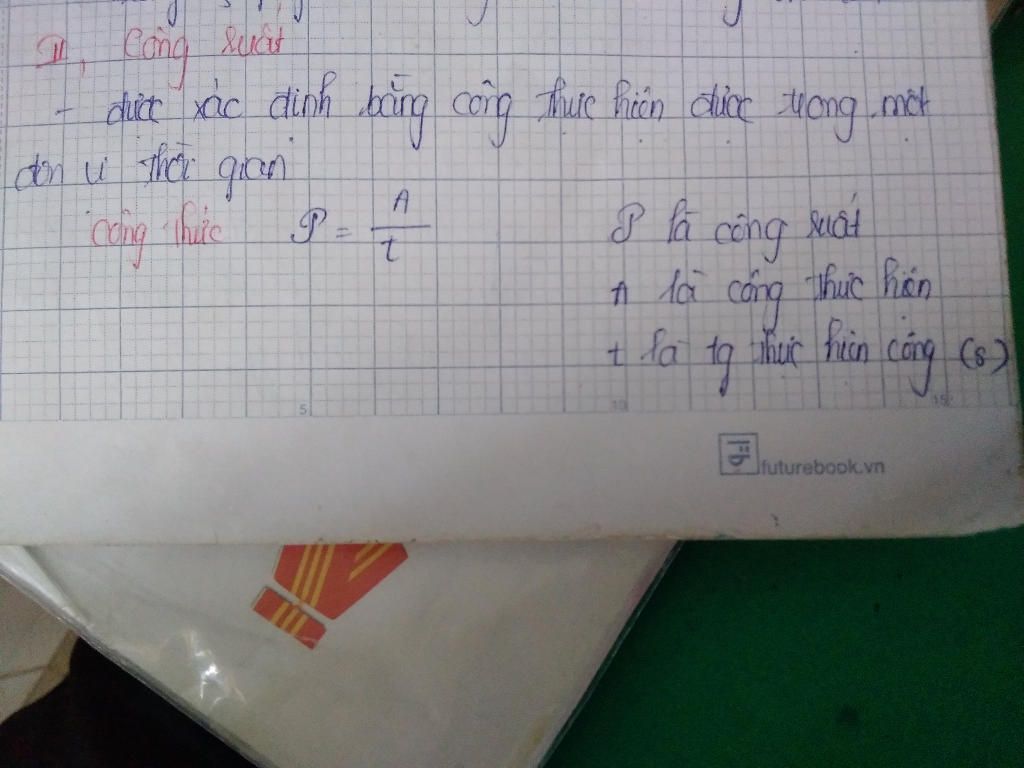 II, Công suất
- được xác định bằng công thực hiện được trong một
đơn vị thời gian
công thức P = A / t
P là công suất
A là công thực hiện
t là tg thực hiện công (s)
5 10 15
futurebook.vn